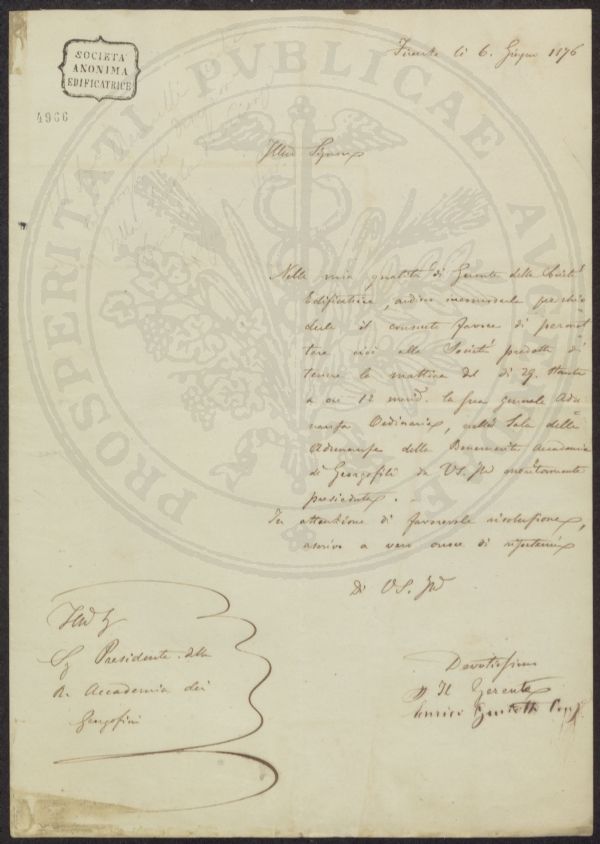 SOCIETÀ
ANONIMA
EDIFICATRICE
4966
PROSPERITATI PUBLICAE AUGENDAE
Firenze li 6. Giugno 1876
Illmo Signore
Nella mia qualità di Gerente della Società
Edificatrice, ardisco
il consueto favore di permet
tere alla Società predetta di
tenere la mattina del dì 29. stante
a ore 12 merid. la sua generale Adu
nanza Ordinaria, nella Sala delle
Adunanze della Benemerita Accademia
di Georgofili da VS. Ill meritamente
presieduta. —
In attenzione di favorevole risoluzione,
ascrivo a vero onore di ripetermi
Di VS. Ill
Illmo
Sig Presidente della
R. Accademia dei
Georgofini
Devotissimo
p Il Gerente
Enrico